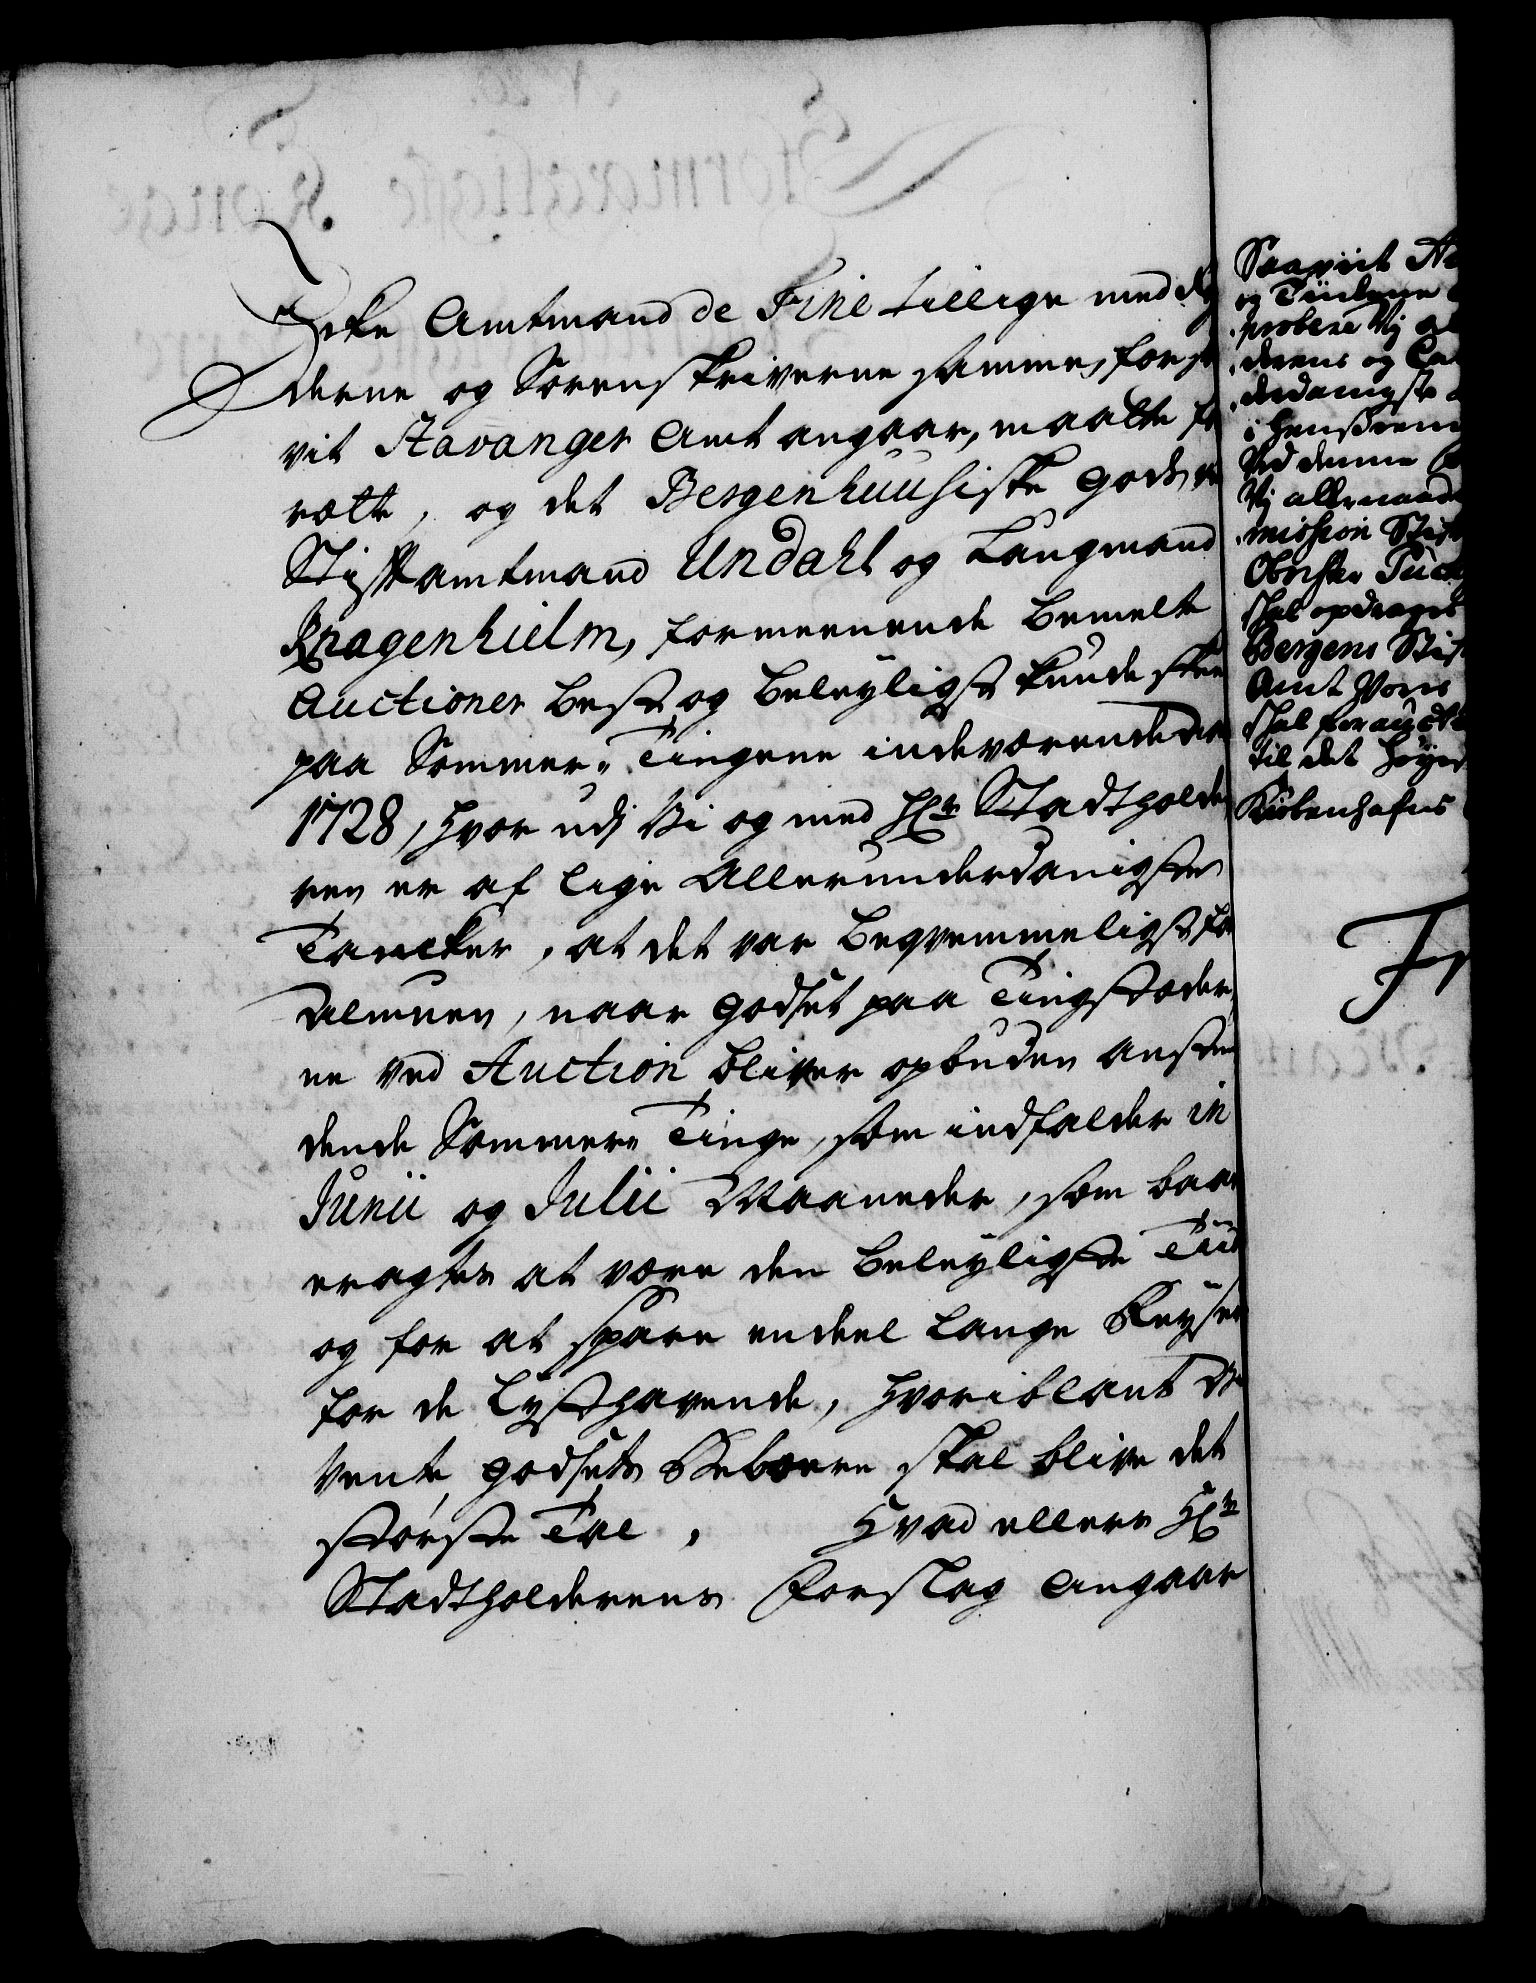 Iche Amtmand de Fine tillige med Fog
derne og Sorenskriverne samme, forsaa
vit Stavanger Amt angaar, maatte for
rette, og det Bergenhuusiske Gods ved
Stiftamtmand Undahl og Laugmand
Knagenhielm, formeenende bemelte
Auctioner best og beleyligst kunde skee
paa Sommer-Tingene indeværende Aar
1728, hvor udj Vi og med Hr Stadtholde
ren er af lige Allerunderdanigste
Tancker, at det var beqvemmeligst for
Almuen, naar Godset paa Tingstæder
ne ved Auction bliver opbuden ansten
dende Sommer-Tinge, som indfalder in
Junii og Julii Maaneder, som baade
eragtes at være den beleyligste Tiid
og for at spare endeel lange Reyser
for de Lysthavende, hvoriblant
vente Godsets Beboere skal blive det
største Tal, Hvad ellers Hr
Stadtholderens Forslag angaar
Saaviit
og Tiidene
probere Vj al
derens og Ca
derdanigste
i henseende
Ved denne
Vj allernaad
mission Stift
Oberster Tuch
skal opdrages
Bergens Stift
Amt Vores
skal for auct
til det høyes
Kiøbenhafns
Fr